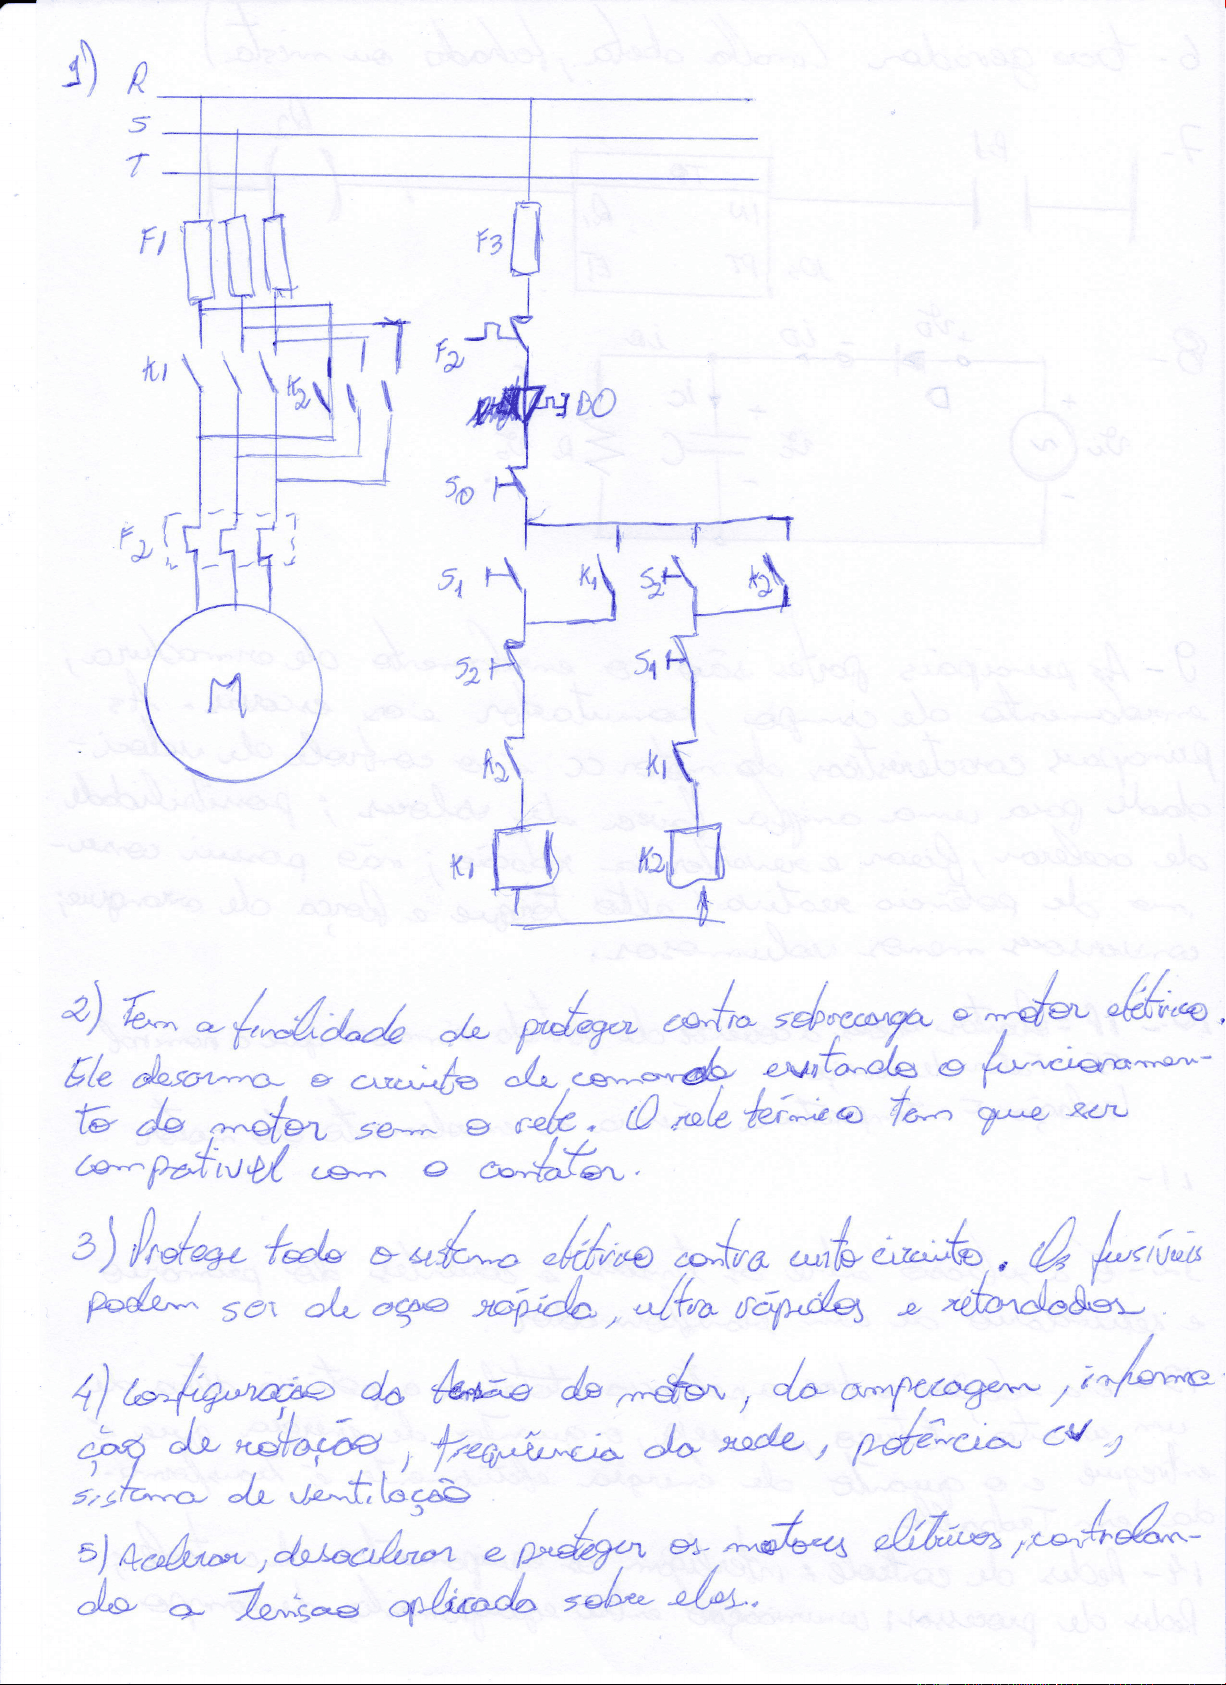 1) R
S
T
F1
F3
F2
K1
K2
BO
S0
F2
S1
K1
S2
K2
M
S2
S1
K2
K1
K1
K2
2) Tem a finalidade de proteger contra sobrecarga o motor elétrico.
Ele desarma o circuito de comando evitando o funcionamen-
to do motor sem o rele. O rele térmico tem que ser
compativel com o contator.
3) Protege todo o sistema elétrico contra curto circuito. Os fusíveis
podem ser de ação rápida, ultra rápidos e retardados
4) Configuração da tensão do motor, da amperagem, informa-
ção de rotação, frequência da rede, potência cv,
sistema de ventilação
5) Acelerar, desacelerar e proteger os motores elétricos, controlan-
do a tensao aplicada sobre eles.